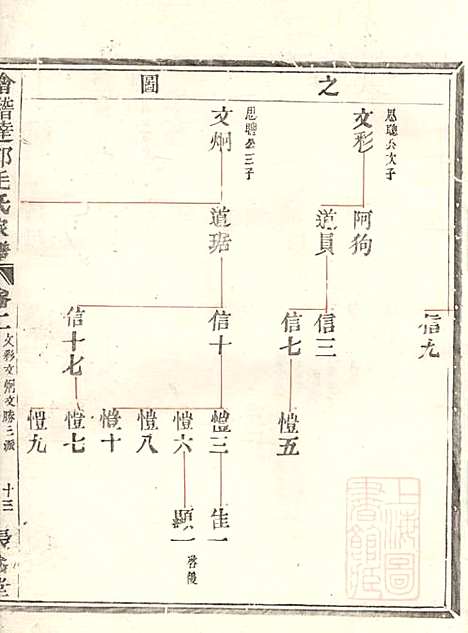 之
圖
思聰公次子
文彩
思聰公三子
文炯
阿狗
道員
道琚
信九
信三
信七
信十
信十七
愷五
愷三
愷六
愷八
愷十
愷七
愷九
隹一
顯一
啓後
會稽達郭毛氏家譜
卷二
文彩文炯文勝三派
十三
上海圖書館藏